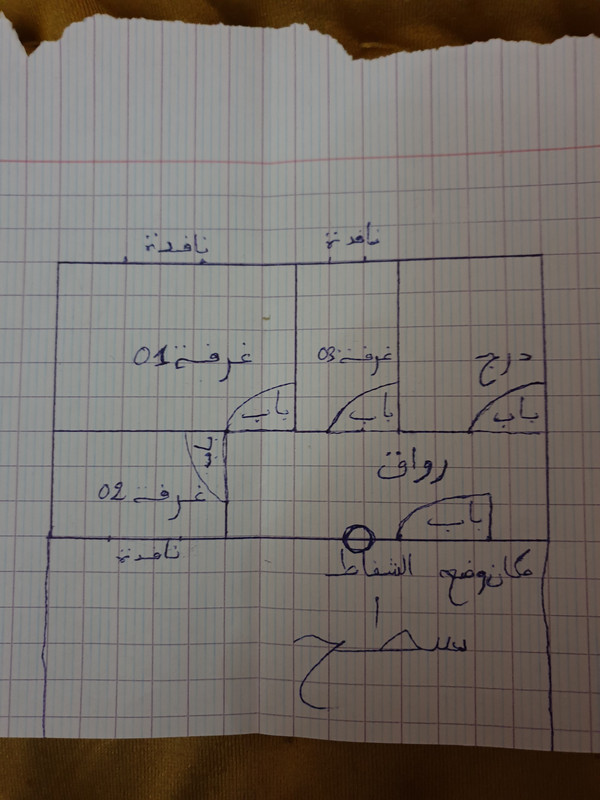 نافدة نافدة
غرفة 01 غرفة 03 درج
باب باب باب
باب رواق
غرفة 02 باب
نافدة
مكان وضع الشفاط
سطح